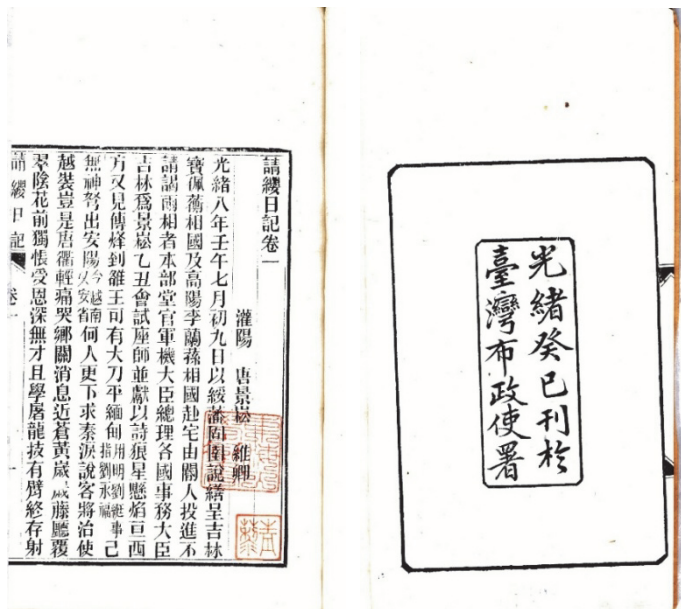 光緒癸巳刊於
臺灣布政使署
請纓日記卷一
灌陽 唐景崧 維卿
光緒八年壬午七月初九日以綏藩固圉說繕呈吉林
寶佩蘅相國及高陽李蘭蓀相國赴宅由閽人投進不
請謁兩相者本部堂官軍機大臣總理各國事務大臣
吉林爲景崧乙丑會試座師並獻以詩狼星懸焰亘西
方又見傳烽到雒王司有大刀平緬甸用明劉綎事指劉永福己
無神弩出安陽今越南乂安省何人更下求秦淚說客將治使
越裝豈是唐衢輕痛哭鄉關消息近蒼黃歲歲藤廳覆
翠陰花前獨悵受恩深無才且學屠龍技有臂終存射
請纓日記 卷一